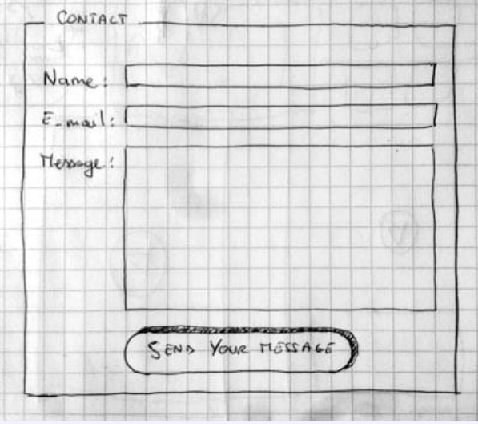 CONTACT
Name:
E-mail:
Message:
SEND YOUR MESSAGE